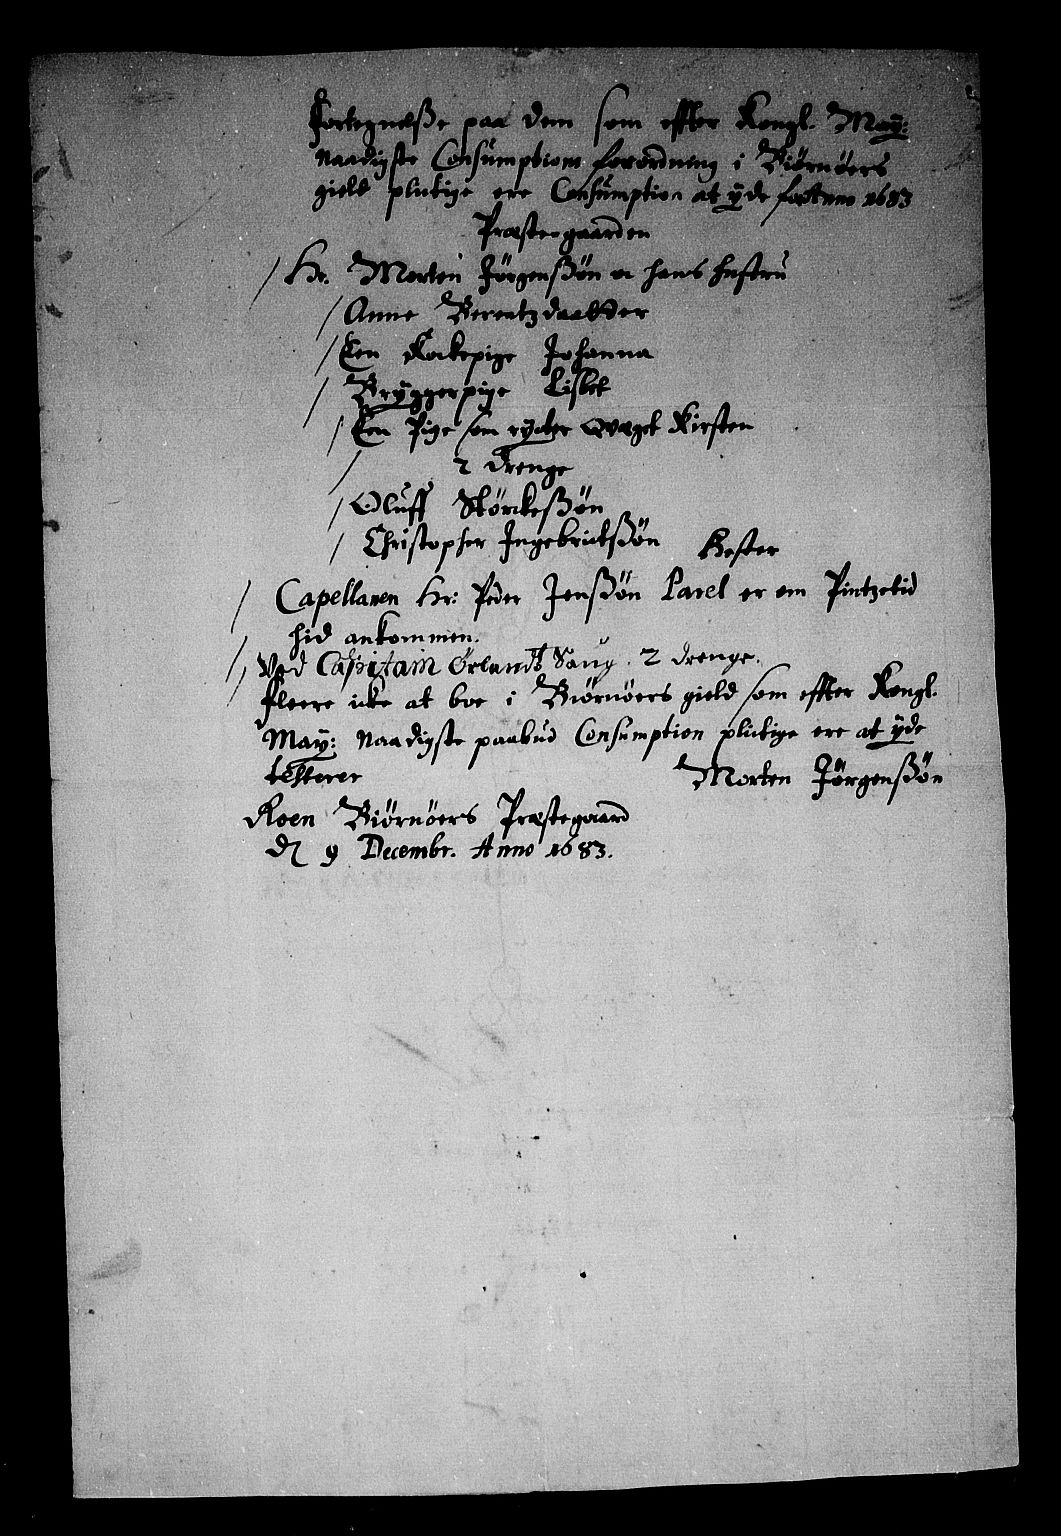 Fortegnelsße paa dem som effter Kongl. May:
naadigste Consumptions forordning i Biørnøers
gield plictige ere Consumption at yde for Anno 1683
Præstegaarden
/ Hr. Morten Jørgensßøn oc hans hustru
/ Anne Berentzdaatter
/ Een Kockepige Johanna
/ Bryggerpige Lisbet
/ Een Pige som rycter qvæget Kirsten
/ 2 drenge
/ Oluff Størckesßøn
/ Christopher Ingebrictsßøn Hester
/ Capellanen Hr: Peder Jensßøn Parel er om Pintzetid
hid ankommen.
// Ved Capitain Ørlandt Saug. 2 drenge.
fleere icke at boe i Biørnøers gield som effter Kongl.
May: naadigste paabud Consumption plictige ere at yde
testerer Morten Jørgensßøn
Roen Biørnøers Præstegaard
d 9 Decembr. Anno 1683.